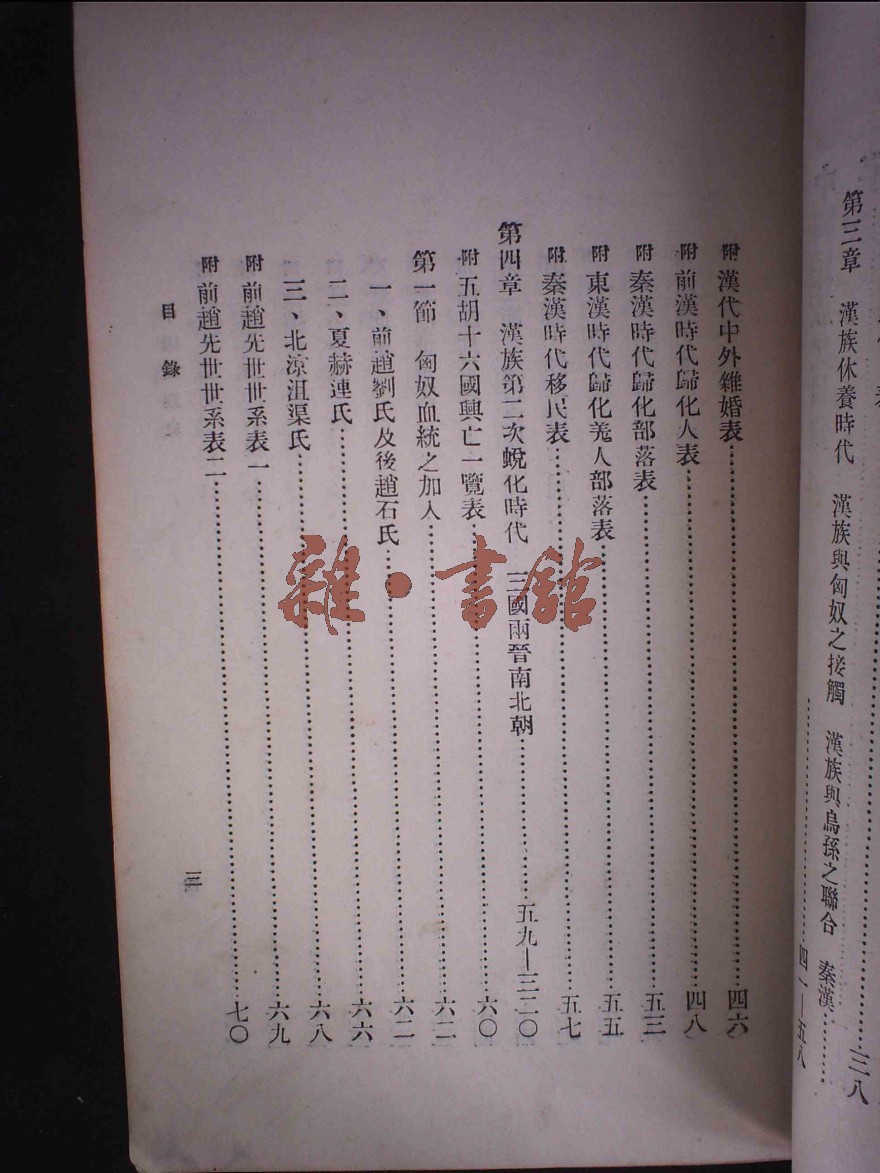 三八
第三章　漢族休養時代　漢族與匈奴之接觸　漢族與烏孫之聯合　秦漢……
四一—五八
附 漢代中外雜婚表……四六
附 前漢時代歸化人表……四八
附 秦漢時代歸化部落表……五三
附 東漢時代歸化羌人部落表……五五
附 秦漢時代移民表……五七
第四章　漢族第二次蛻化時代　三國兩晉南北朝……五九—三二〇
附 五胡十六國興亡一覽表……六〇
第一節　匈奴血統之加入……六二
一、前趙劉氏及後趙石氏……六二
二、夏赫連氏……六六
三、北涼沮渠氏……六八
附 前趙先世世系表一……六九
附 前趙先世世系表二……七〇
目錄
三
雜·書館